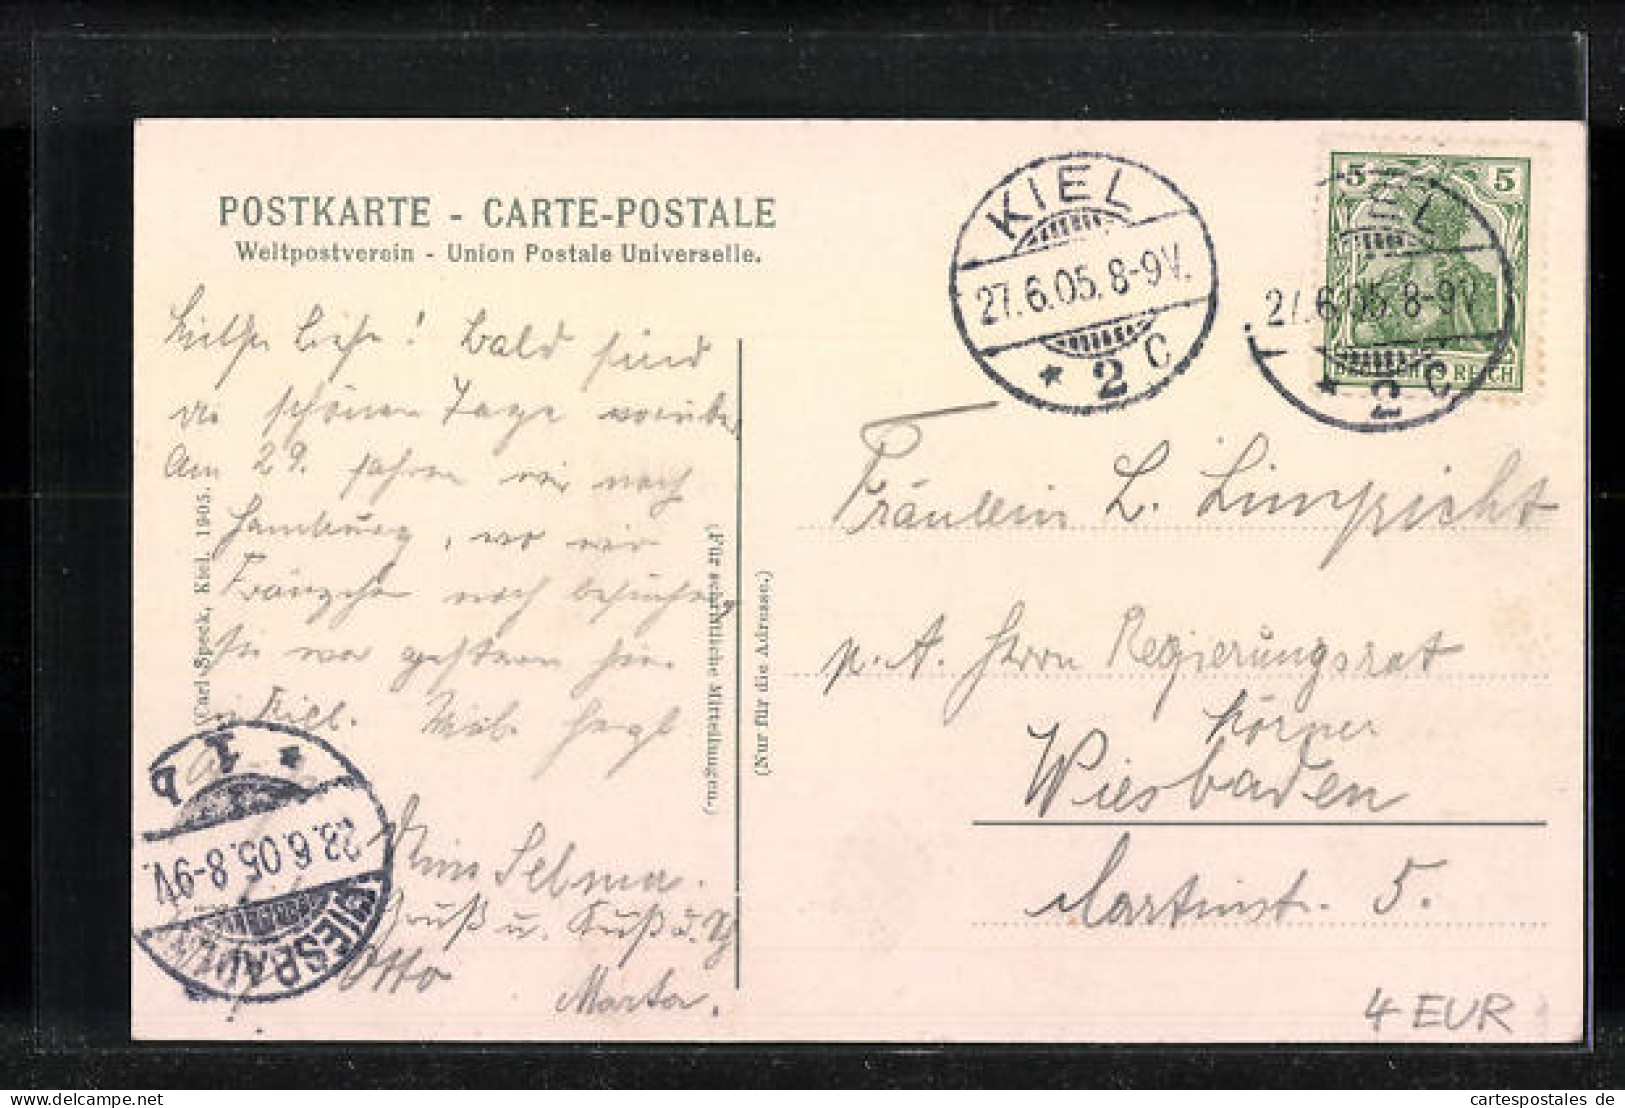 POSTKARTE - CARTE-POSTALE
Weltpostverein - Union Postale Universelle.
KIEL
27.6.05. 8-9V.
* 2 C
5 5
DEUTSCHES REICH
KIEL
27.6.05. 8-9V.
* 2 C
Liebe! Bald sind
die schönen Tage vorüber
Am 29. fahren wir nach
Hamburg, wo wir
Fränzchen noch besuchen
Sie war gestern hier
in Kiel.
Selma.
Gruß u. Kuß
Otto
Marta.
Carl Speck, Kiel. 1905.
(Für schriftliche Mitteilungen.)
(Nur für die Adresse.)
Fräulein L. Limpricht
p. A. Herrn Regierungsrat
Körner
Wiesbaden
Martinstr. 5.
WIESBADEN
28.6.05. 8-9V.
* 1 b
4 EUR
www.cartespostales.eu
cartespostales de